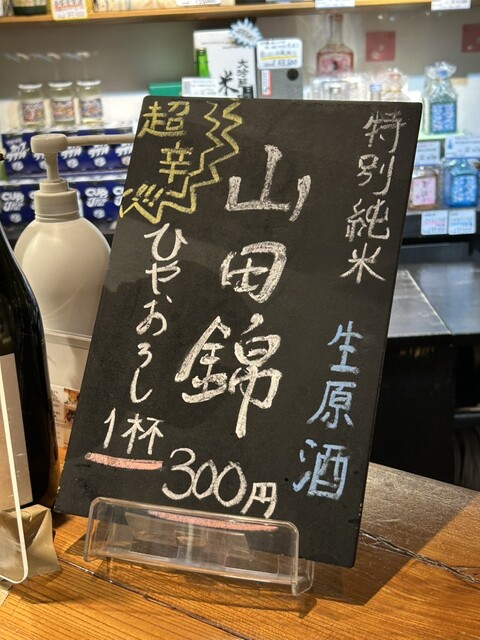 特別純米
生原酒
山田錦
超辛!!!
ひやおろし
1杯
300円